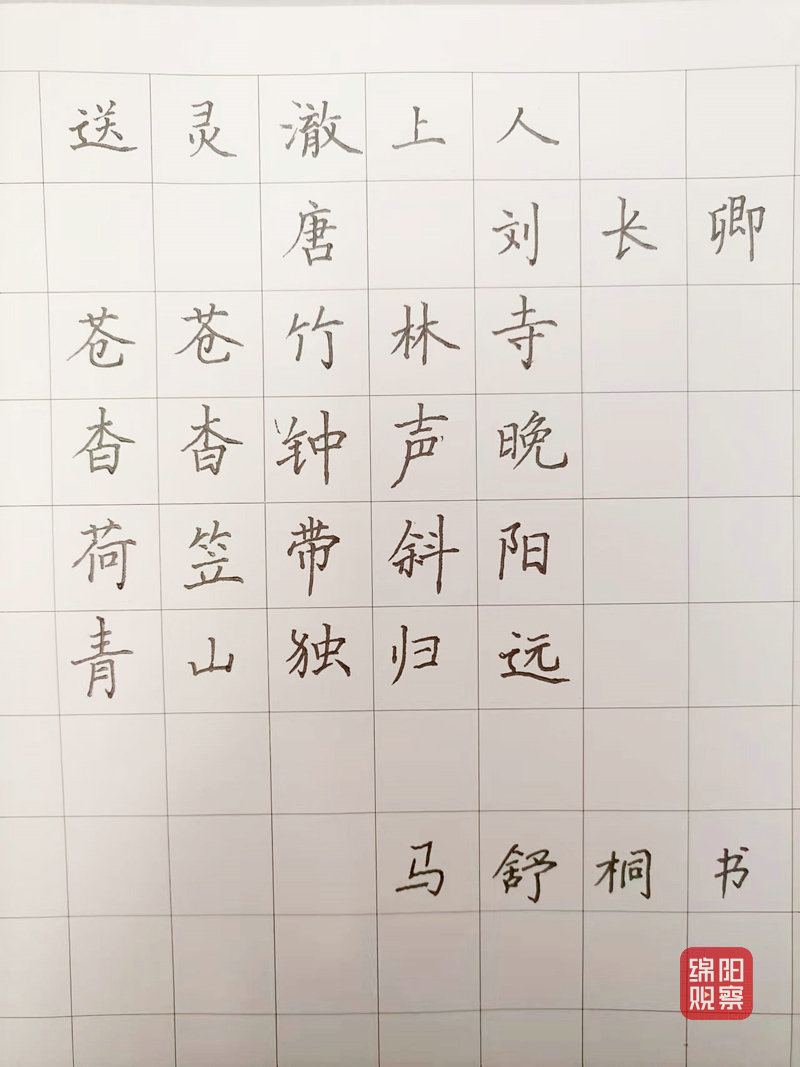 送灵澈上人
唐 刘长卿
苍苍竹林寺
杳杳钟声晚
荷笠带斜阳
青山独归远
马舒桐书
绵阳
观察